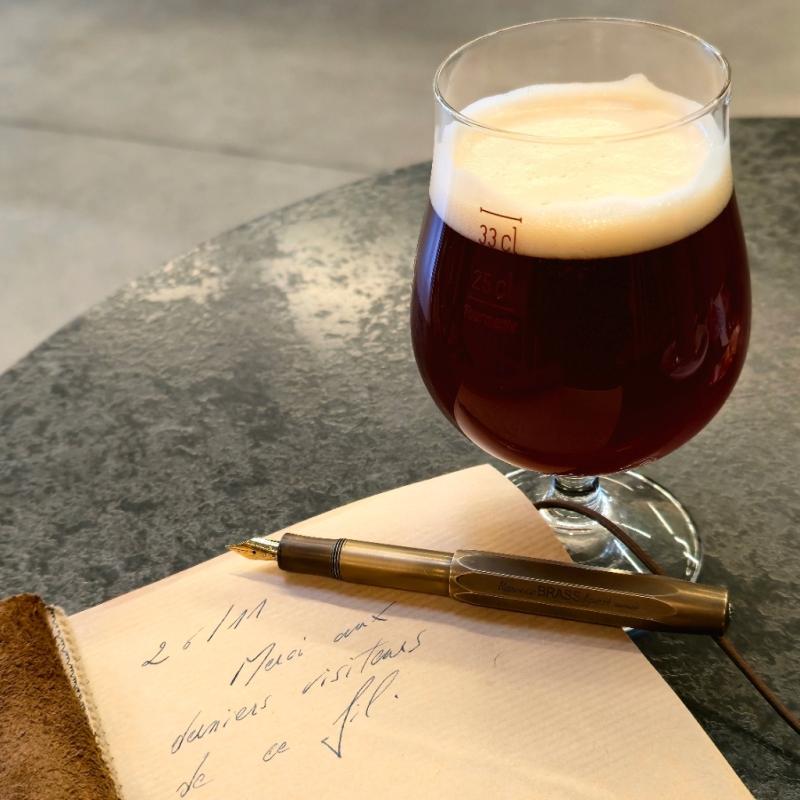 33 cl
25 cl
BRASS
26/11
Merci aux
derniers visiteurs
de ce fil.